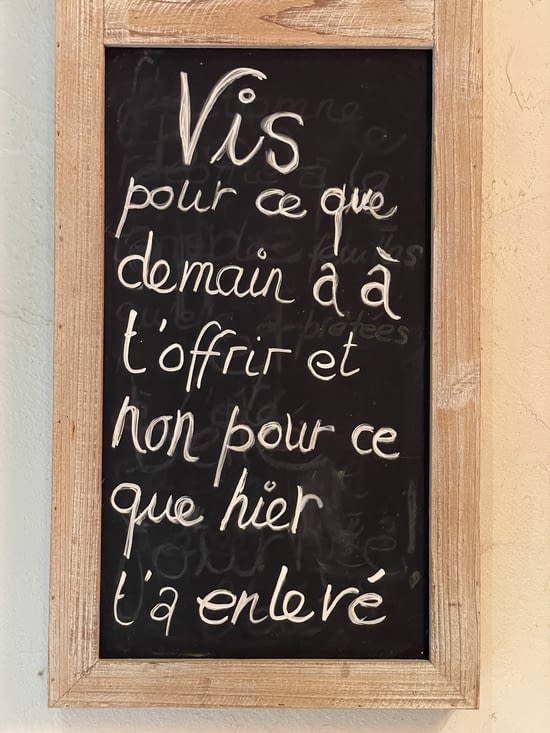 Vis
pour ce que
demain a à
t'offrir et
non pour ce
que hier
t'a enlevé